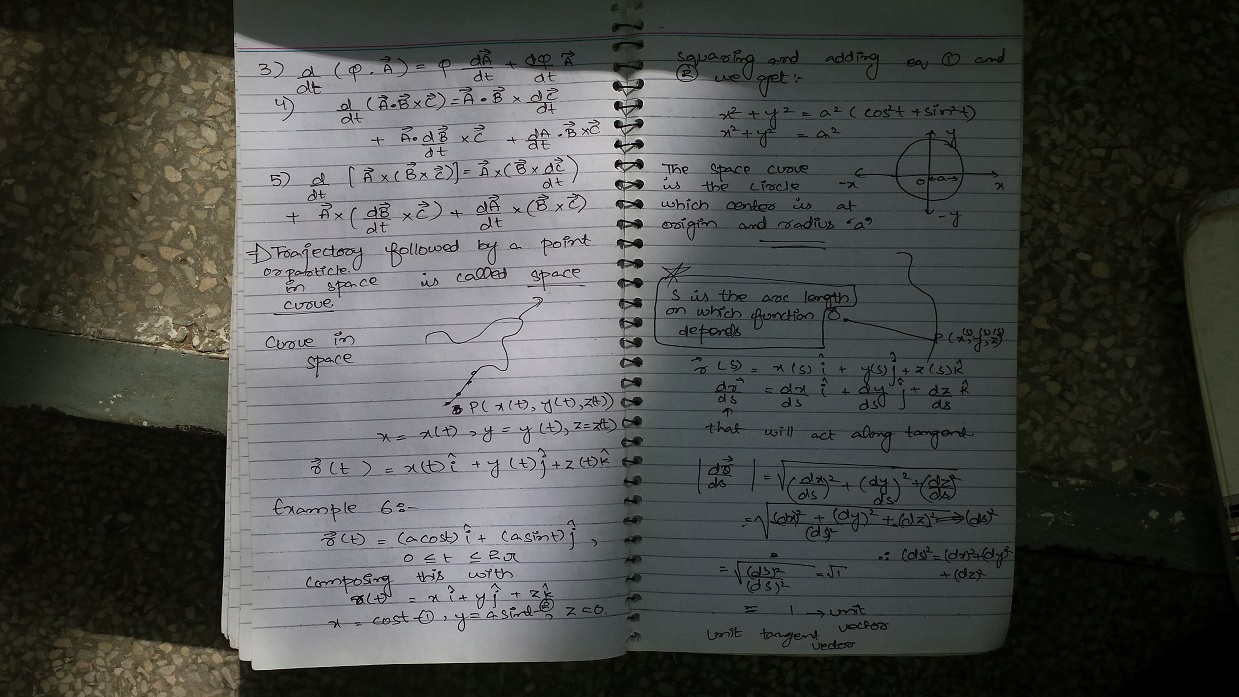 3) d/dt (φ . A⃗) = φ dA⃗/dt + dφ/dt A⃗
4) d/dt (A⃗•B⃗×C⃗) = A⃗•B⃗ × dC⃗/dt
+ A⃗•dB⃗/dt ×C⃗ + dA/dt .B⃗×C⃗
5) d/dt [A⃗×(B⃗×C⃗)] = A⃗×(B⃗×dC⃗/dt)
+ A⃗×(dB⃗/dt ×C⃗) + dA⃗/dt ×(B⃗×C⃗)
Trajectory followed by a point
or particle
in space is called space
curve.
Curve in
space
P(x(t), y(t), z(t))
x = x(t), y = y(t), z = z(t)
r⃗(t) = x(t)î + y(t)ĵ + z(t)k̂
Example 6:-
r⃗(t) = (acost)î + (asint)ĵ,
0 ≤ t ≤ 2π
composing this with
r(t) = xî + yĵ + zk̂
x = cost-①, y = asint-②, z = 0.
squaring and adding eq ① and
② we get:-
x² + y² = a² (cos²t + sin²t)
x² + y² = a²
The space curve
is the circle
which center is at
origin and radius 'a'
y
-x o a x
-y
S is the arc length
on which function r⃗
depends
P(x(s), y(s), z(s))
r⃗(s) = x(s)î + y(s)ĵ + z(s)k̂
dr⃗/ds = dx/ds î + dy/ds ĵ + dz/ds k̂
↑
that will act along tangent
|dr⃗/ds| = √((dx/ds)² + (dy/ds)² + (dz/ds)²)
= √((dx)² + (dy)² + (dz)²/(ds)²) ⇒ (ds)²
∴ (ds)² = (dx)² + (dy)²
+ (dz)²
= √((ds)²/(ds)²) = √1
= 1 → unit
vector
unit tangent
vector